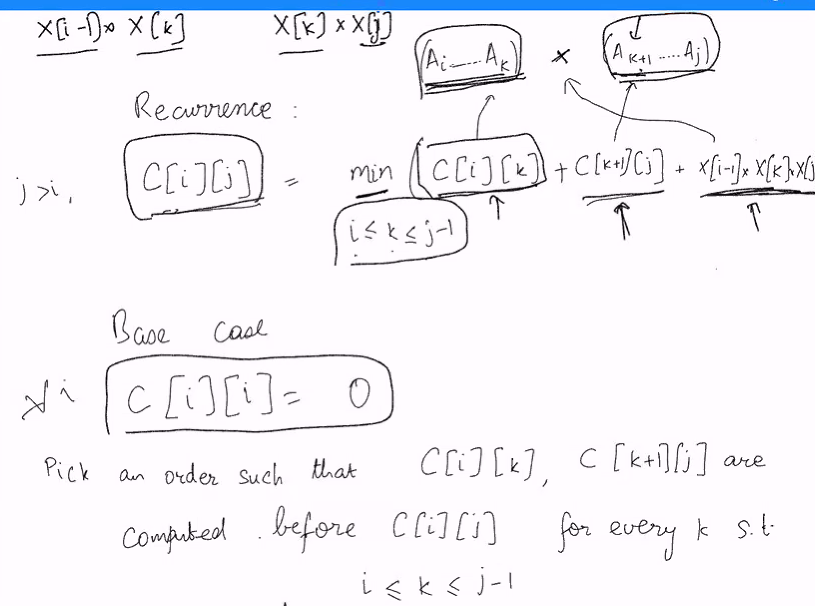 X[i-1] × X[k]    X[k] × X[j]
(Ai.....Ak) × (Ak+1.....Aj)
Recurrence :
j>i, C[i][j] = min (C[i][k] + C[k+1][j] + X[i-1]×X[k]×X[j
i≤k≤j-1
Base case
∀i C[i][i] = 0
Pick an order such that C[i][k], C[k+1][j] are
computed before C[i][j] for every k s.t.
i ≤ k ≤ j-1